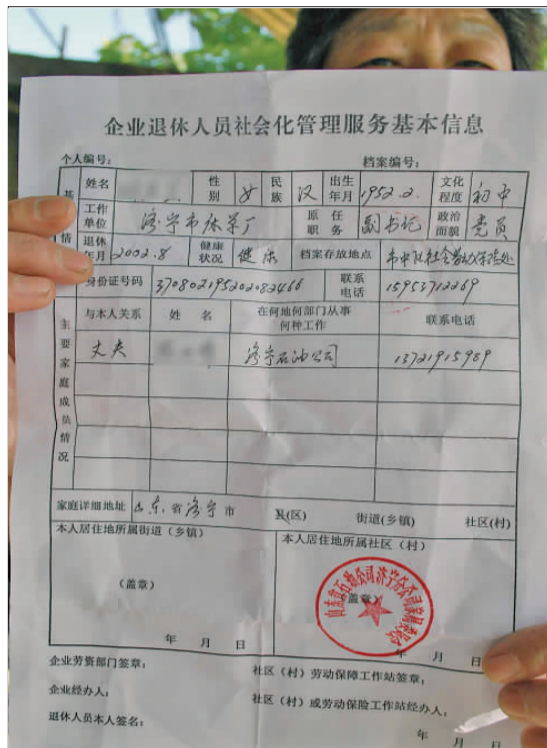 企业退休人员社会化管理服务基本信息
个人编号： 档案编号：
姓名 性别 女 民族 汉 出生年月 1952.2. 文化程度 初中
工作单位 济宁市 厂 原任职务 副书记 政治面貌 党员
退休年月 2002.8 健康状况 健康 档案存放地点 市中区社会劳动保险处
身份证号码 370802195202082466 联系电话 15953712269
主要家庭成员情况
与本人关系 姓名 在何地何部门从事何种工作 联系电话
丈夫 济宁石油公司 13721915989
家庭详细地址 山东省济宁市 县(区) 街道(乡镇) 社区(村)
本人居住地所属街道（乡镇） 本人居住地所属社区（村）
（盖章） （盖章）
年 月 日 年 月 日
企业劳资部门签章： 社区（村）劳动保障工作站签章：
企业经办人： 社区（村）或劳动保险工作站经办人：
退休人员本人签名：
年 月 日